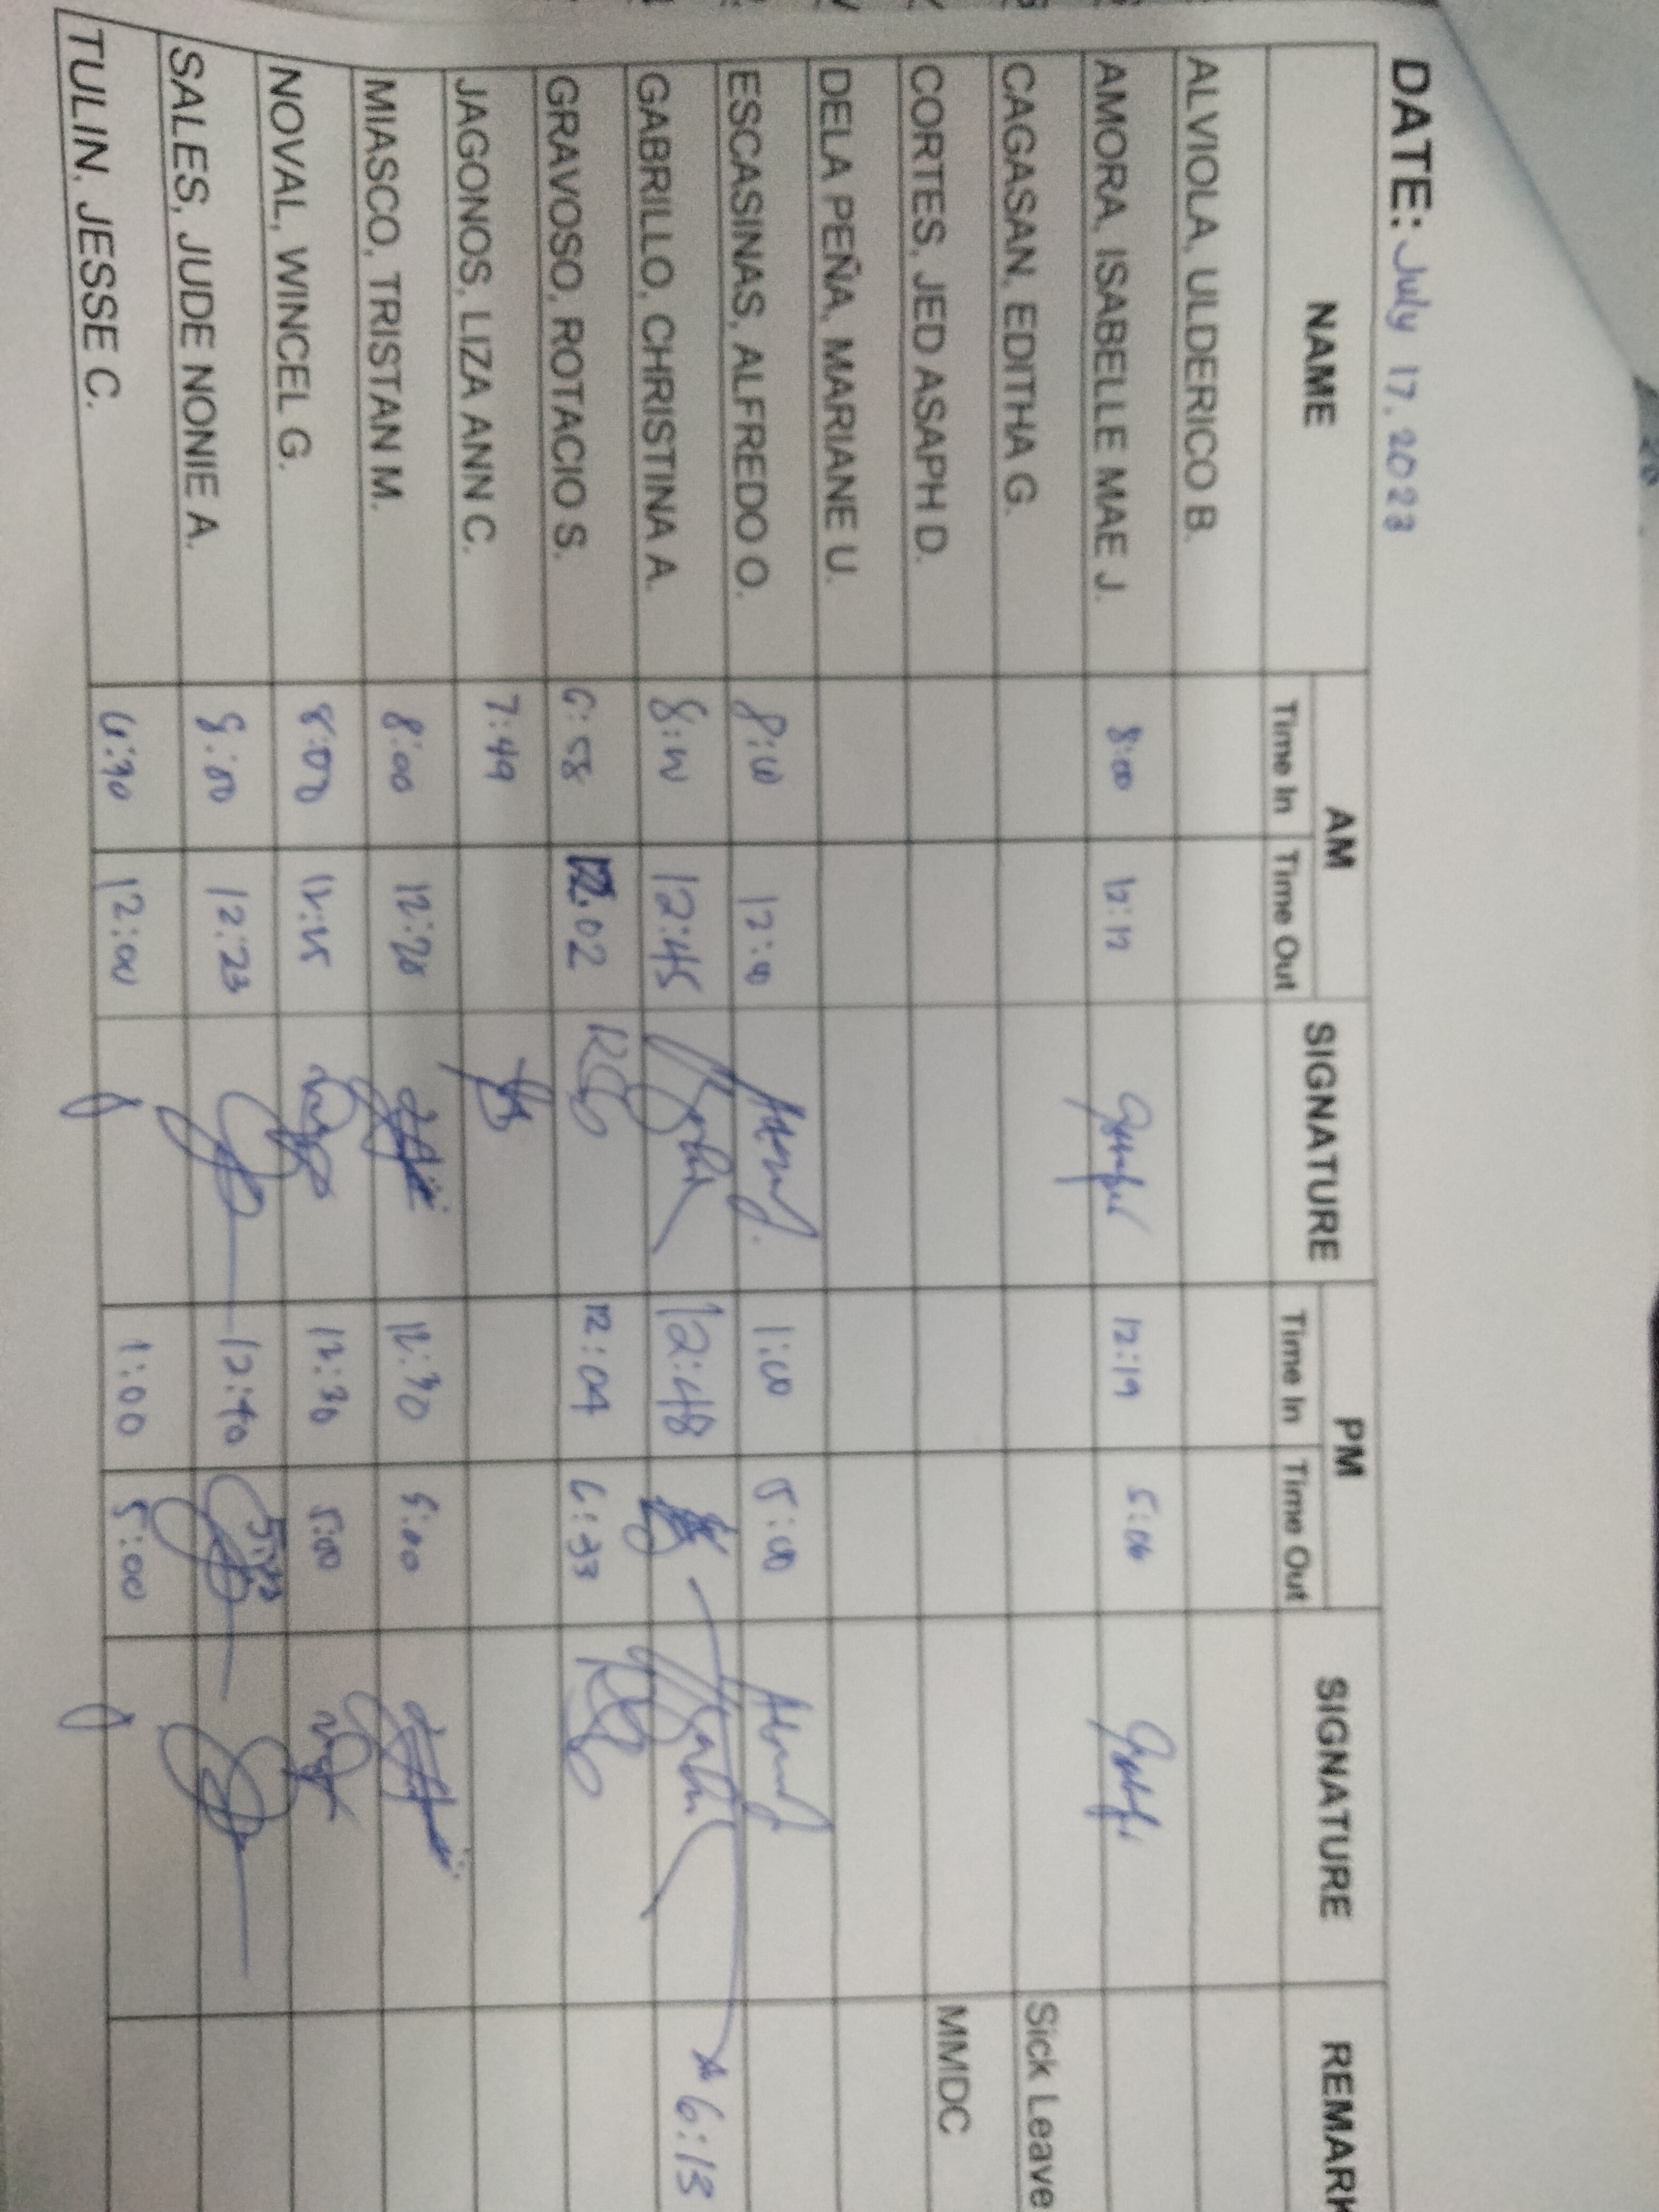 DATE: July 17, 2023
NAME AM SIGNATURE PM SIGNATURE REMARK
Time In Time Out Time In Time Out
ALVIOLA, ULDERICO B.
AMORA, ISABELLE MAE J. 8:00 12:17 12:19 5:06
CAGASAN, EDITHA G. Sick Leave
CORTES, JED ASAPH D. MMDC
DELA PEÑA, MARIANE U.
ESCASINAS, ALFREDO O. 8:00 12:00 1:00 5:00
GABRILLO, CHRISTINA A. 8:00 12:45 12:48 6:13
GRAVOSO, ROTACIO S. 6:58 12:02 12:04 6:33
JAGONOS, LIZA ANN C. 7:49
MIASCO, TRISTAN M. 8:00 12:28 12:30 5:00
NOVAL, WINCEL G. 8:00 12:15 12:30 5:00
SALES, JUDE NONIE A. 8:00 12:23 12:40
TULIN, JESSE C. 6:30 12:00 1:00 5:00